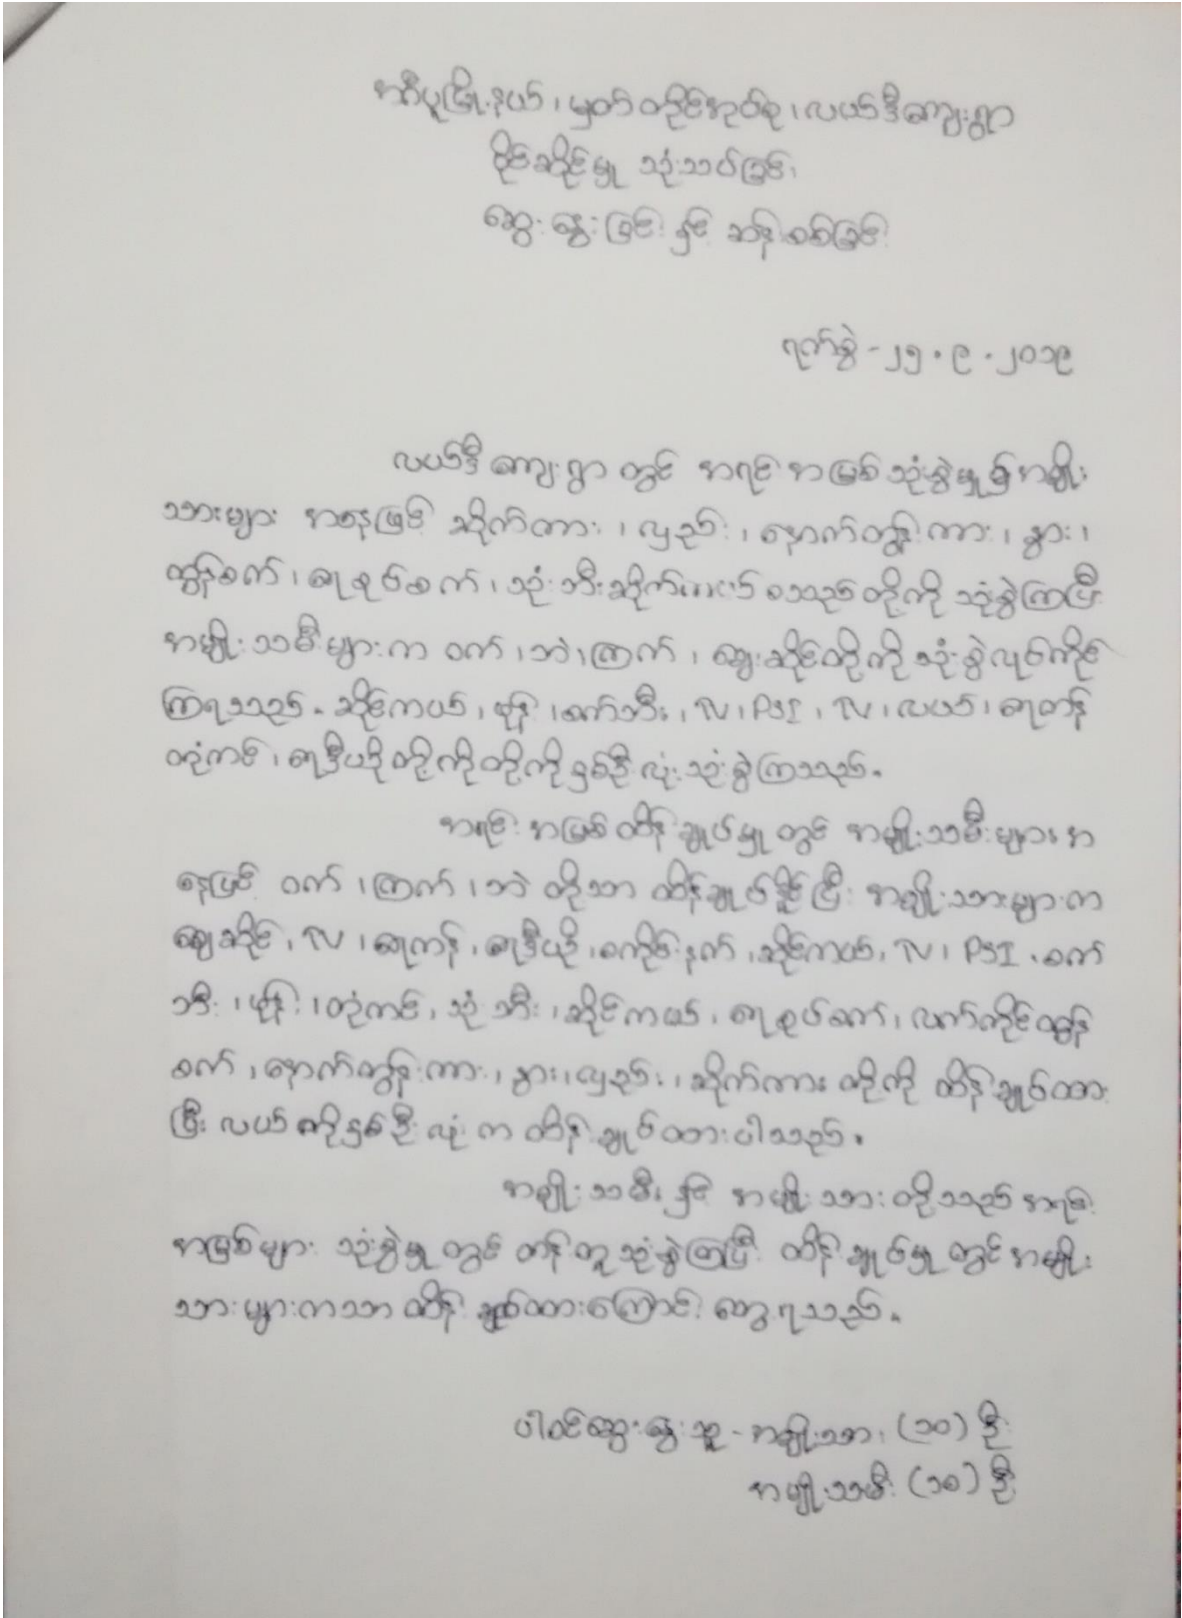 အင်္ဂပူမြို့နယ်၊ မှတ်တိုင်အုပ်စု၊ လယ်ဒီကျေးရွာ
ပိုင်ဆိုင်မှု သုံးသပ်ခြင်း
ဆွေးနွေးခြင်း နှင့် ဆန်းစစ်ခြင်း
ရက်စွဲ - ၂၅.၉.၂၀၁၉
လယ်ဒီကျေးရွာ တွင် အရင်းအမြစ် သုံးစွဲမှု၌ အမျိုး
သားများ အနေဖြင့် ဆိုက်ကား၊ လှည်း၊ နောက်တွဲကား၊ နွား၊
ထွန်စက်၊ ရေစုပ်စက်၊ သုံးဘီးဆိုက်ကယ် စသည်တို့ကို သုံးစွဲကြပြီး
အမျိုးသမီးများက ဝက်၊ ဘဲ၊ ကြက်၊ ဈေးဆိုင်တို့ကို သုံးစွဲလုပ်ကိုင်
ကြရသည်။ ဆိုင်ကယ်၊ ဖုန်း၊ စက်ဘီး၊ TV၊ PSI၊ TV၊ လယ်၊ ရေကန်
တုံကင်၊ ရေဒီယိုတို့ကိုတို့ကို နှစ်ဦးလုံး သုံးစွဲကြသည်။
အရင်းအမြစ်ထိန်းချုပ်မှု တွင် အမျိုးသမီးများ အ
နေဖြင့် ဝက်၊ ကြက်၊ ဘဲ တို့သာ ထိန်းချုပ်နိုင်ပြီး အမျိုးသားများက
ဈေးဆိုင်၊ TV၊ ရေကန်၊ ရေဒီယို၊ ဆိုင်ကယ်၊ TV၊ PSI၊ စက်
ဘီး၊ ဖုန်း၊ တုံကင်၊ သုံးဘီး၊ ဆိုင်ကယ်၊ ရေစုပ်စက်၊ လက်ကိုင်ထွန်
စက်၊ နောက်တွဲကား၊ နွား၊ လှည်း၊ ဆိုက်ကား တို့ကို ထိန်းချုပ်ထား
ပြီး လယ်ကို နှစ်ဦးလုံးက ထိန်းချုပ်ထားပါသည်။
အမျိုးသမီး နှင့် အမျိုးသား တို့သည် အရင်း
အမြစ်များ သုံးစွဲမှုတွင် တန်းတူသုံးစွဲကြပြီး ထိန်းချုပ်မှုတွင် အမျိုး
သားများကသာ ထိန်းချုပ်ထားကြောင်း တွေ့ရသည်။
ပါဝင်ဆွေးနွေးသူ - အမျိုးသား (၁၀) ဦး
အမျိုးသမီး (၁၈) ဦး